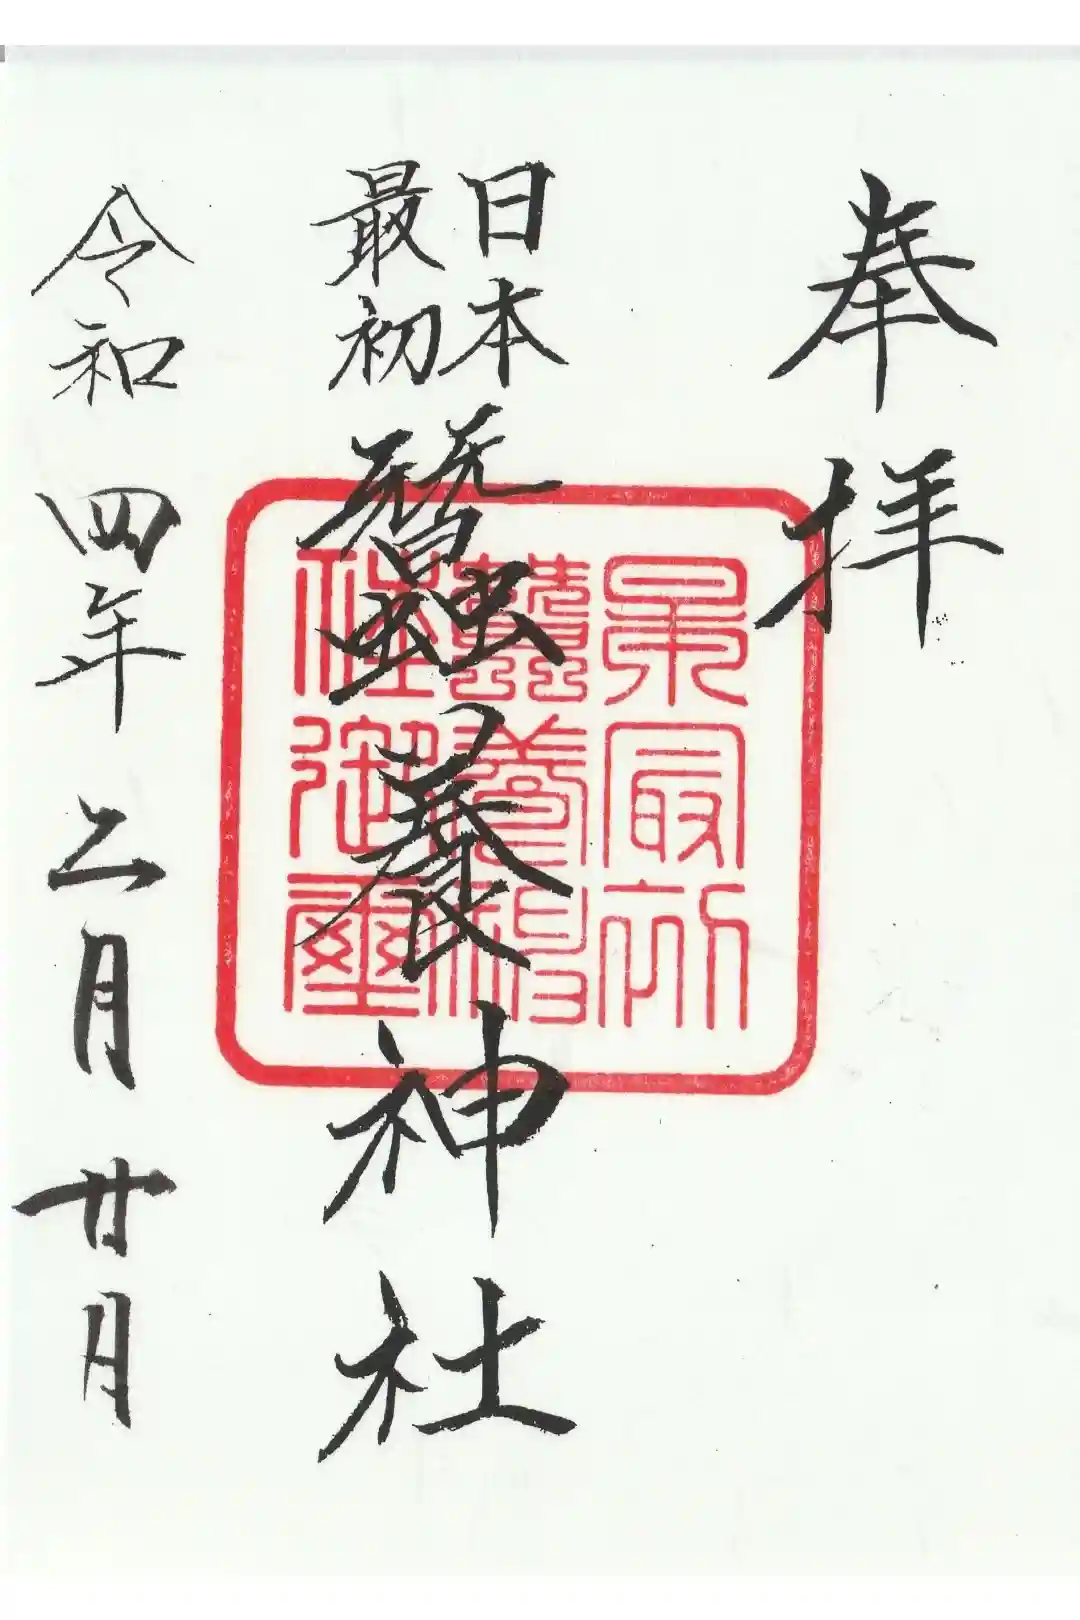 奉拝
日本
最初
蠶養神社
令和四年二月廿月
日本最初
蠶養神
社御璽